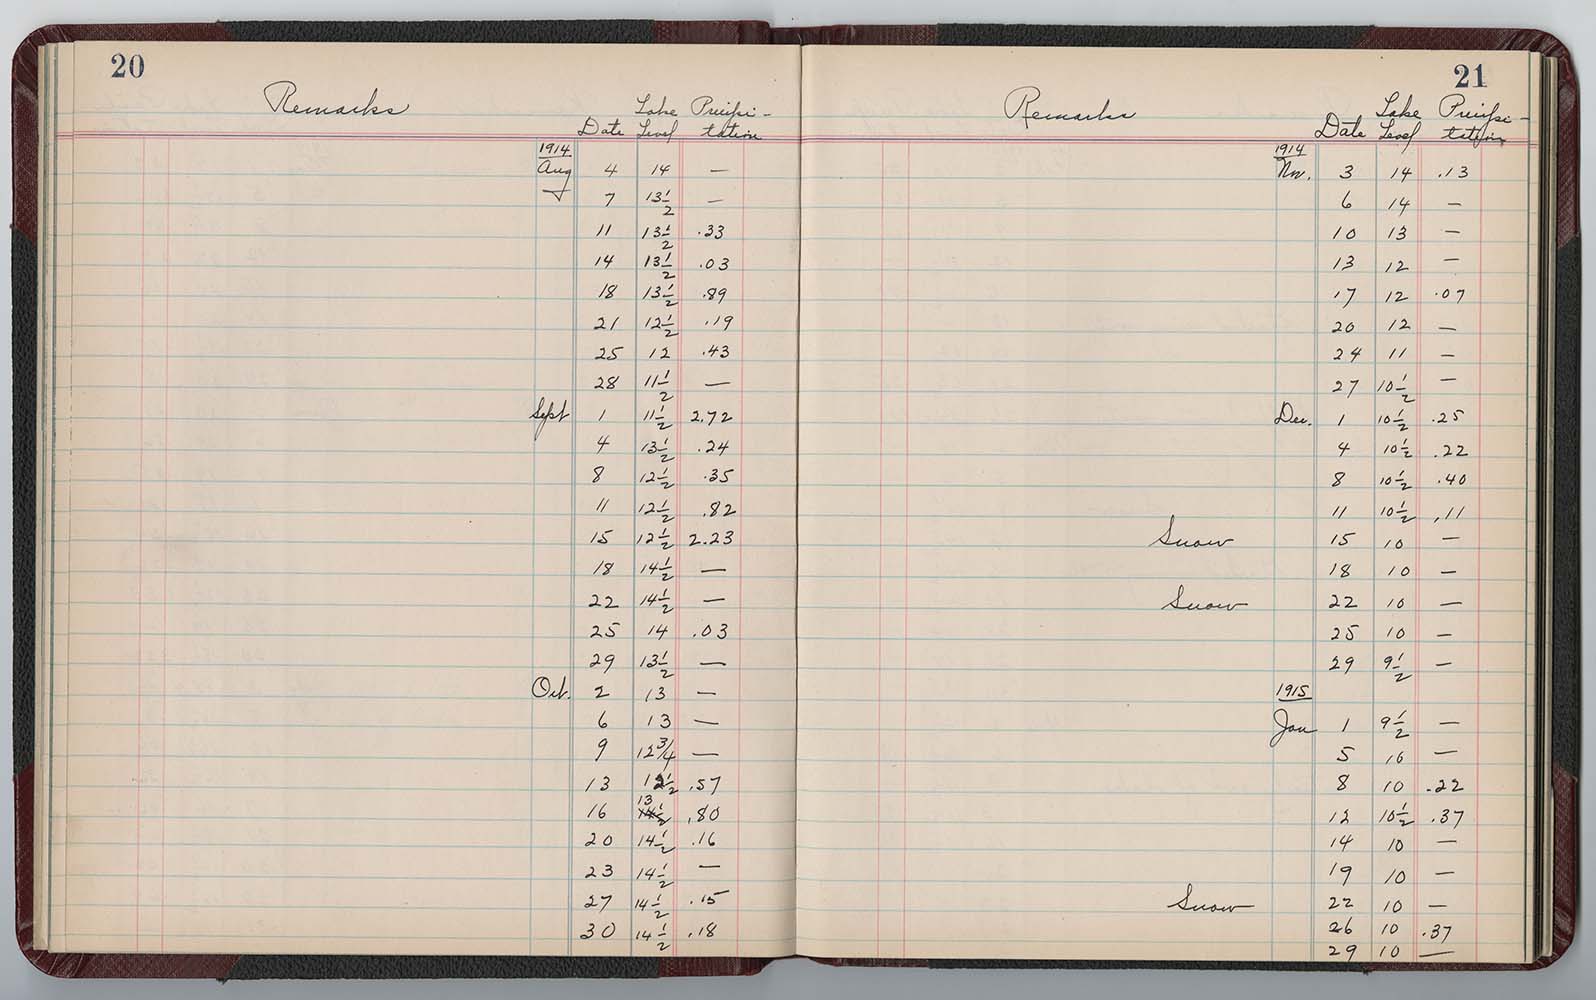 20
Remarks Date Lake Level Precipi-tation
1914
Aug 4 14 —
7 13 1/2 —
11 13 1/2 .33
14 13 1/2 .03
18 13 1/2 .89
21 12 1/2 .19
25 12 .43
28 11 1/2 —
Sept 1 11 1/2 2.72
4 13 1/2 .24
8 12 1/2 .35
11 12 1/2 .82
15 12 1/2 2.23
18 14 1/2 —
22 14 1/2 —
25 14 .03
29 13 1/2 —
Oct. 2 13 —
6 13 —
9 12 3/4 —
13 12 1/2 .57
16 13 .80
20 14 1/2 .16
23 14 1/2 —
27 14 1/2 .15
30 14 1/2 .18
21
Remarks Date Lake Level Precipi-tation
1914
Nov. 3 14 .13
6 14 —
10 13 —
13 12 —
17 12 .07
20 12 —
24 11 —
27 10 1/2 —
Dec. 1 10 1/2 .25
4 10 1/2 .22
8 10 1/2 .40
11 10 1/2 .11
Snow 15 10 —
18 10 —
Snow 22 10 —
25 10 —
29 9 1/2 —
1915
Jan 1 9 1/2 —
5 10 —
8 10 .22
12 10 1/2 .37
14 10 —
19 10 —
Snow 22 10 —
26 10 .37
29 10 —